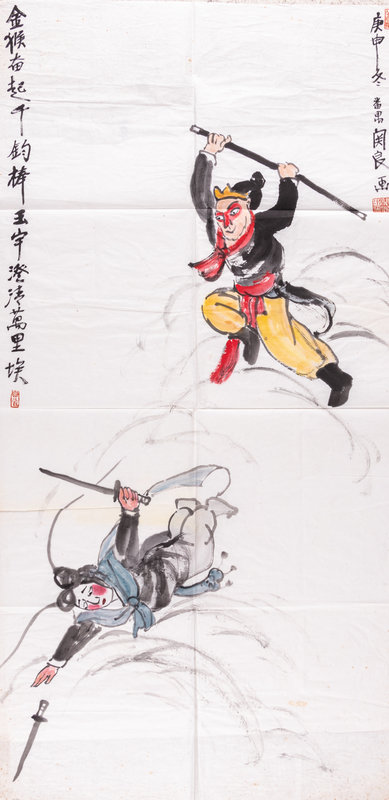 庚申冬 番禺 関良画
金猴奋起千钧棒玉宇澄清萬里埃